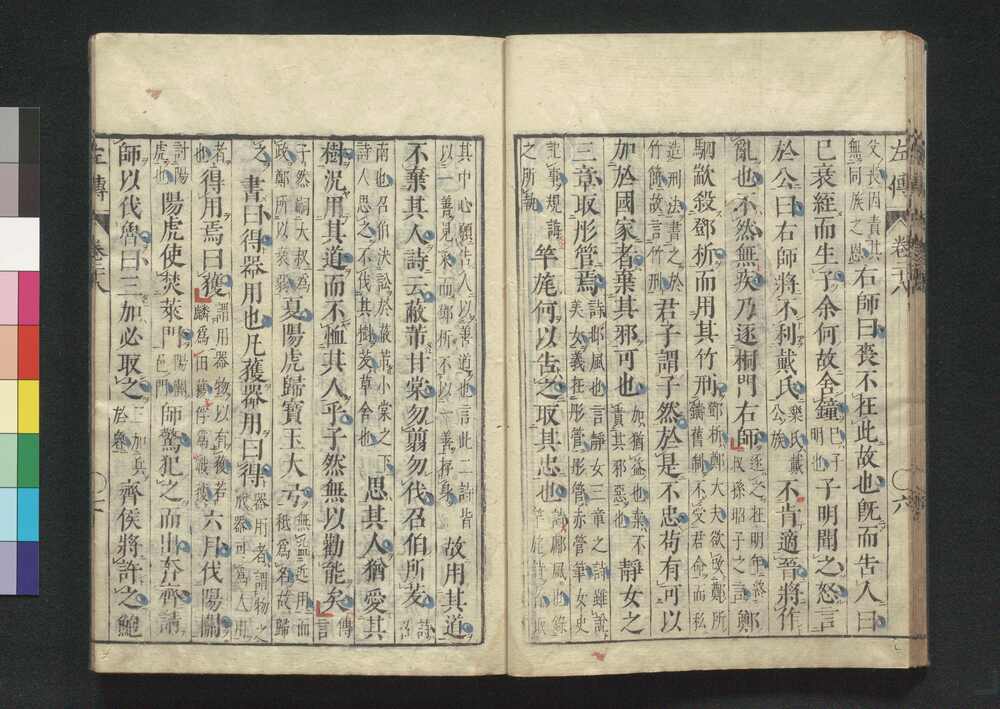 左傳 卷廿八 六
父喪因責其無同族之恩右師曰喪不在此故也既而告人曰
已衰絰而生子余何故舍鐘已子明也子明聞之怒言
於公曰右師將不利戴氏樂氏戴公族不肯適晉將作
亂也不然無疾乃逐桐門右師逐之在明年終叔孫昭子之言鄭
駟歂殺鄧析而用其竹刑鄧析鄭大夫欲改鄭所鑄舊制不受君命而私
造刑法書之於竹簡故言竹刑君子謂子然於是不忠苟有可以
加於國家者棄其邪可也加猶益也棄不責其邪惡也靜女之
三章取彤管焉詩邶風也言靜女三章之詩雖說美女義在彤管彤管赤管筆女史
記事規誨之所執竿旄何以告之取其忠也詩鄘風也錄竿旄詩者取
其中心願告人以善道也言此二詩皆以一善見采而鄧析不以一善存身故用其道
不棄其人詩云蔽芾甘棠勿翦勿伐召伯所茇詩召
南也召伯決訟於蔽芾小棠之下詩人思之不伐其樹茇草舍也思其人猶愛其
樹況用其道而不恤其人乎子然無以勸能矣傳言
子然嗣大叔爲政鄭所以衰弱夏陽虎歸寶玉大弓無益近用而秪爲名故歸
之書曰得器用也凡獲器用曰得器用者謂物之成器可爲人用
者也得用焉曰獲謂用器物以有獲若麟爲田獲俘爲戰獲六月伐陽關
討陽虎也陽虎使焚萊門陽關邑門師驚犯之而出奔齊請
師以伐魯曰三加必取之三加兵於魯齊侯將許之鮑
左傳 卷廿八